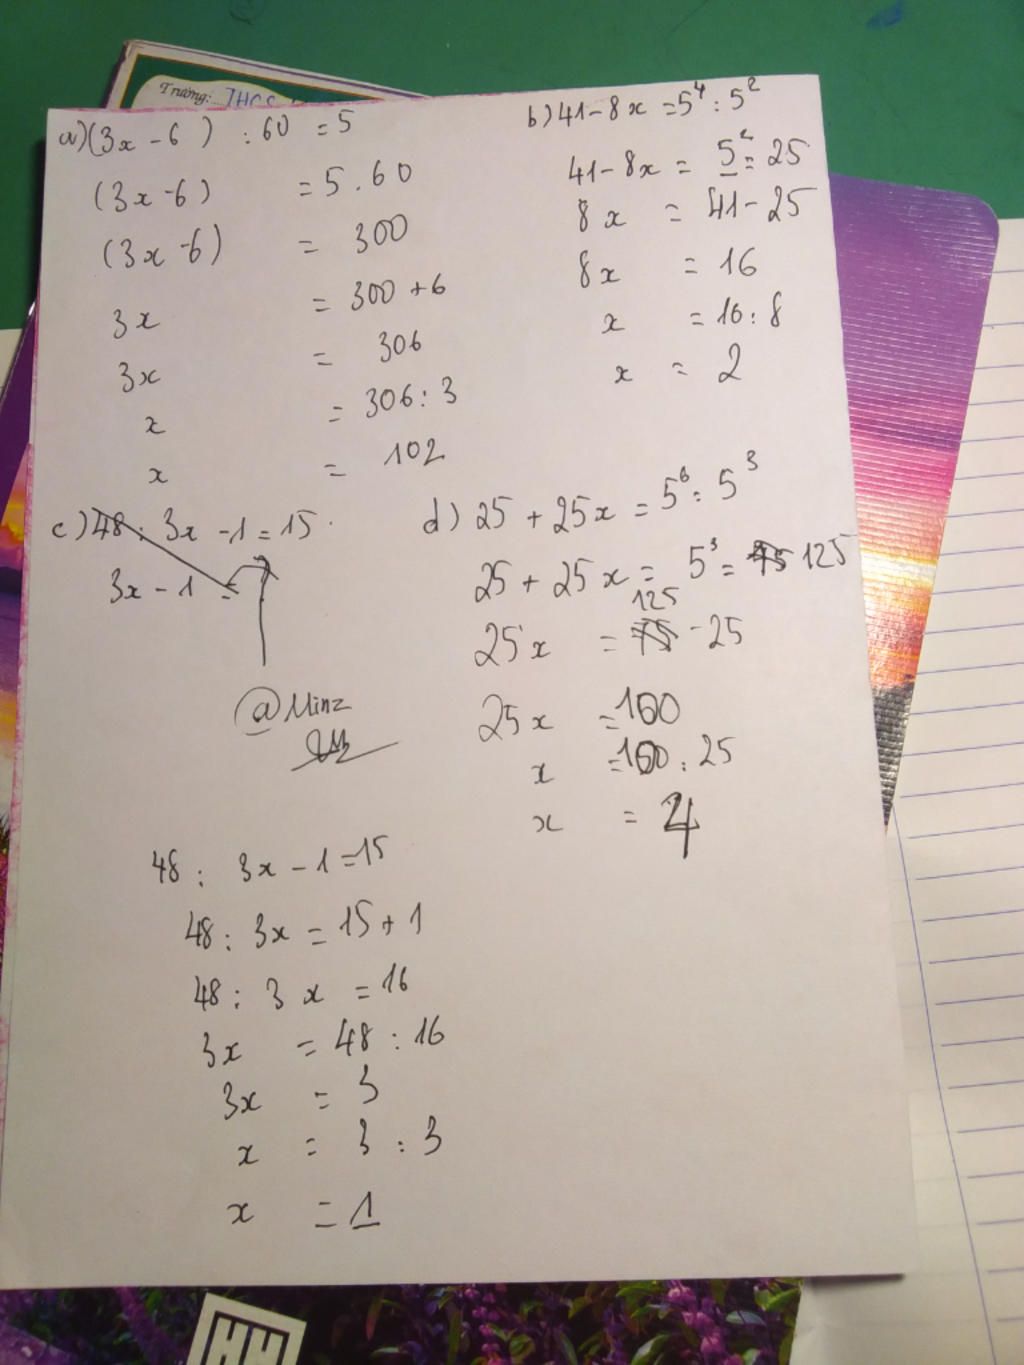 Trường: THCS
a) (3x - 6) : 60 = 5
(3x - 6) = 5 . 60
(3x - 6) = 300
3x = 300 + 6
3x = 306
x = 306 : 3
x = 102
b) 41 - 8x = 5⁴ : 5²
41 - 8x = 5² = 25
8x = 41 - 25
8x = 16
x = 16 : 8
x = 2
c) 48 : 3x - 1 = 15
3x - 1 =
@Minz
d) 25 + 25x = 5⁶ : 5³
25 + 25x = 5³ = 75 125
125
25x = 75 - 25
25x = 100
x = 100 : 25
x = 4
48 : 3x - 1 = 15
48 : 3x = 15 + 1
48 : 3x = 16
3x = 48 : 16
3x = 3
x = 3 : 3
x = 1